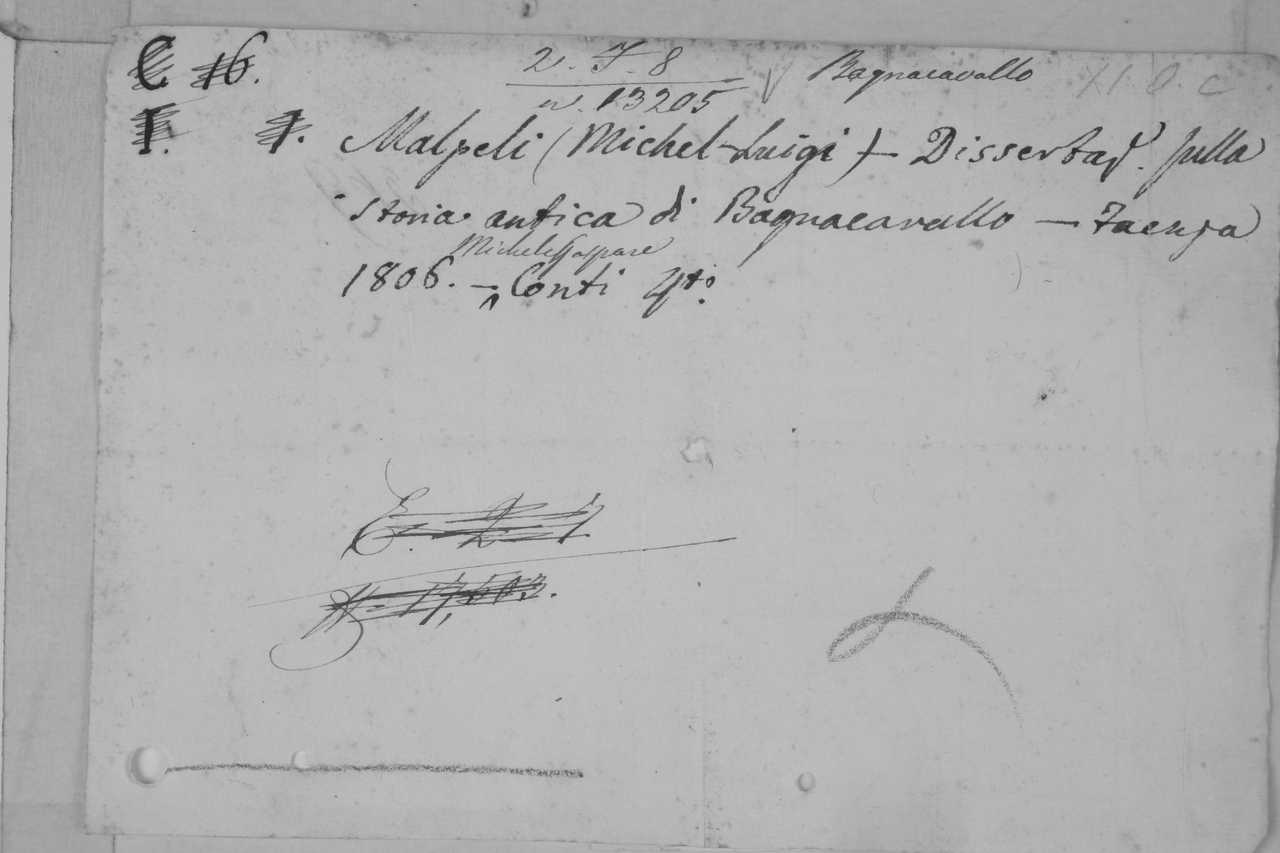 C 16.
2. F. 8
n. 13205
Bagnacavallo
XI. O. C
I. 7. Malpeli (Michel-Luigi) — Dissertaz. sulla
storia antica di Bagnacavallo — Faenza
Michele Gaspare
1806. — Conti 4to.
E. 2